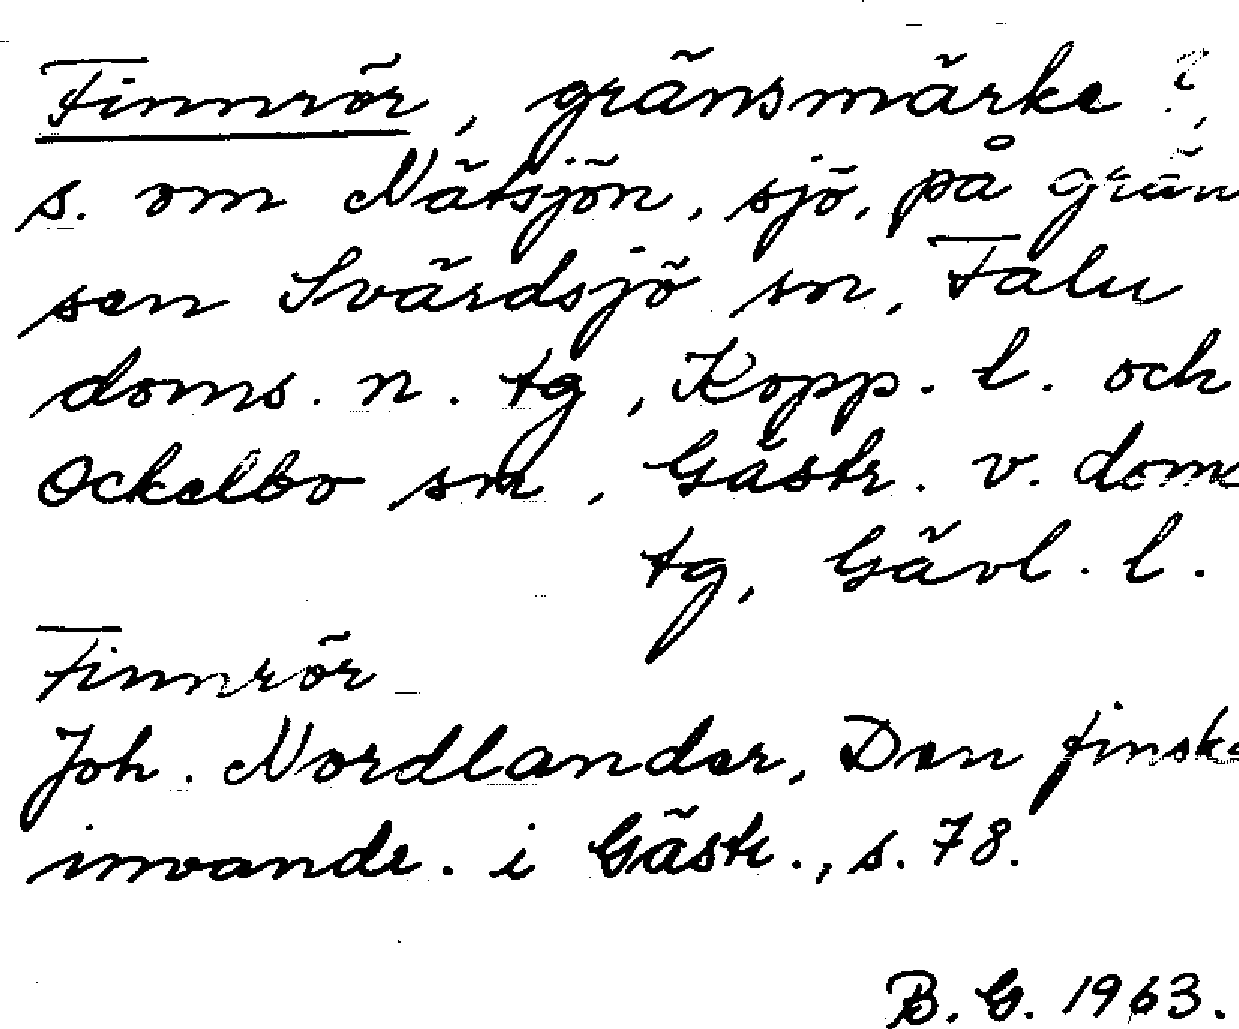 Finnrör, gränsmärke?,
s. om Nätsjön, sjö, på grän
sen Svärdsjö sn, Falu
doms. n. tg, Kopp. l. och
Ockelbo sn, Gästr. v. doms
tg, Gävl. l.
Finnrör
Joh. Nordlander, Den finska
invandr. i Gästr., s. 78.
B. G. 1963.